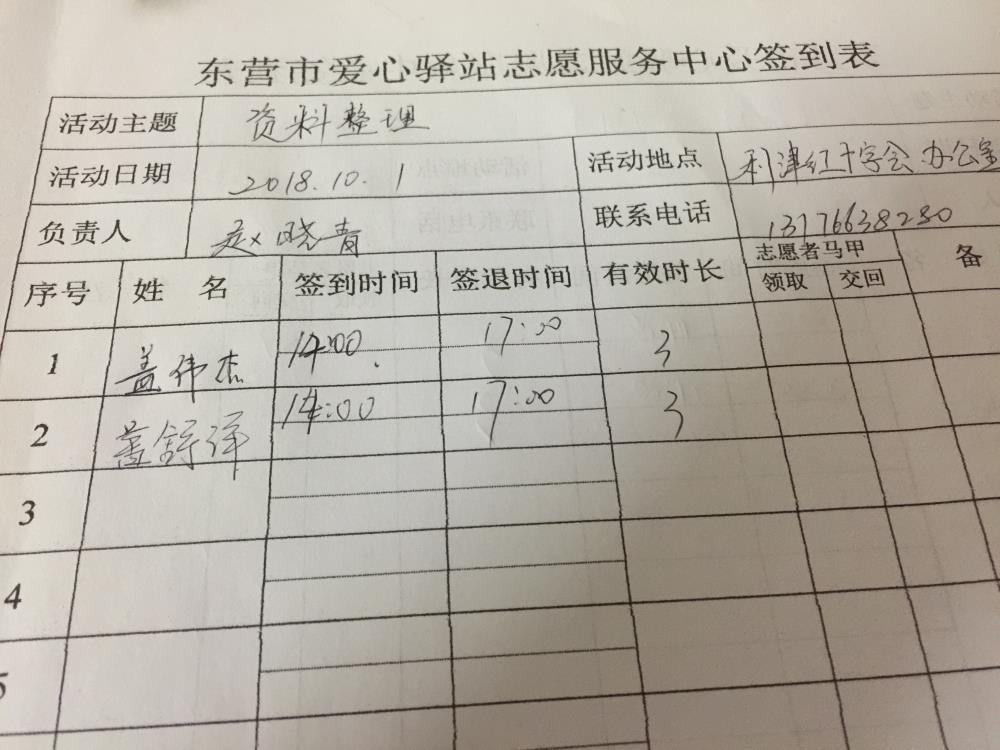 东营市爱心驿站志愿服务中心签到表
活动主题 资料整理
活动日期 2018.10.1 活动地点 利津红十字会办公室
负责人 赵晓青 联系电话 13176638280
序号 姓 名 签到时间 签退时间 有效时长 志愿者马甲 备
领取 交回
1 盖伟杰 14:00 17:00 3
2 盖舒洋 14:00 17:00 3
3
4
5